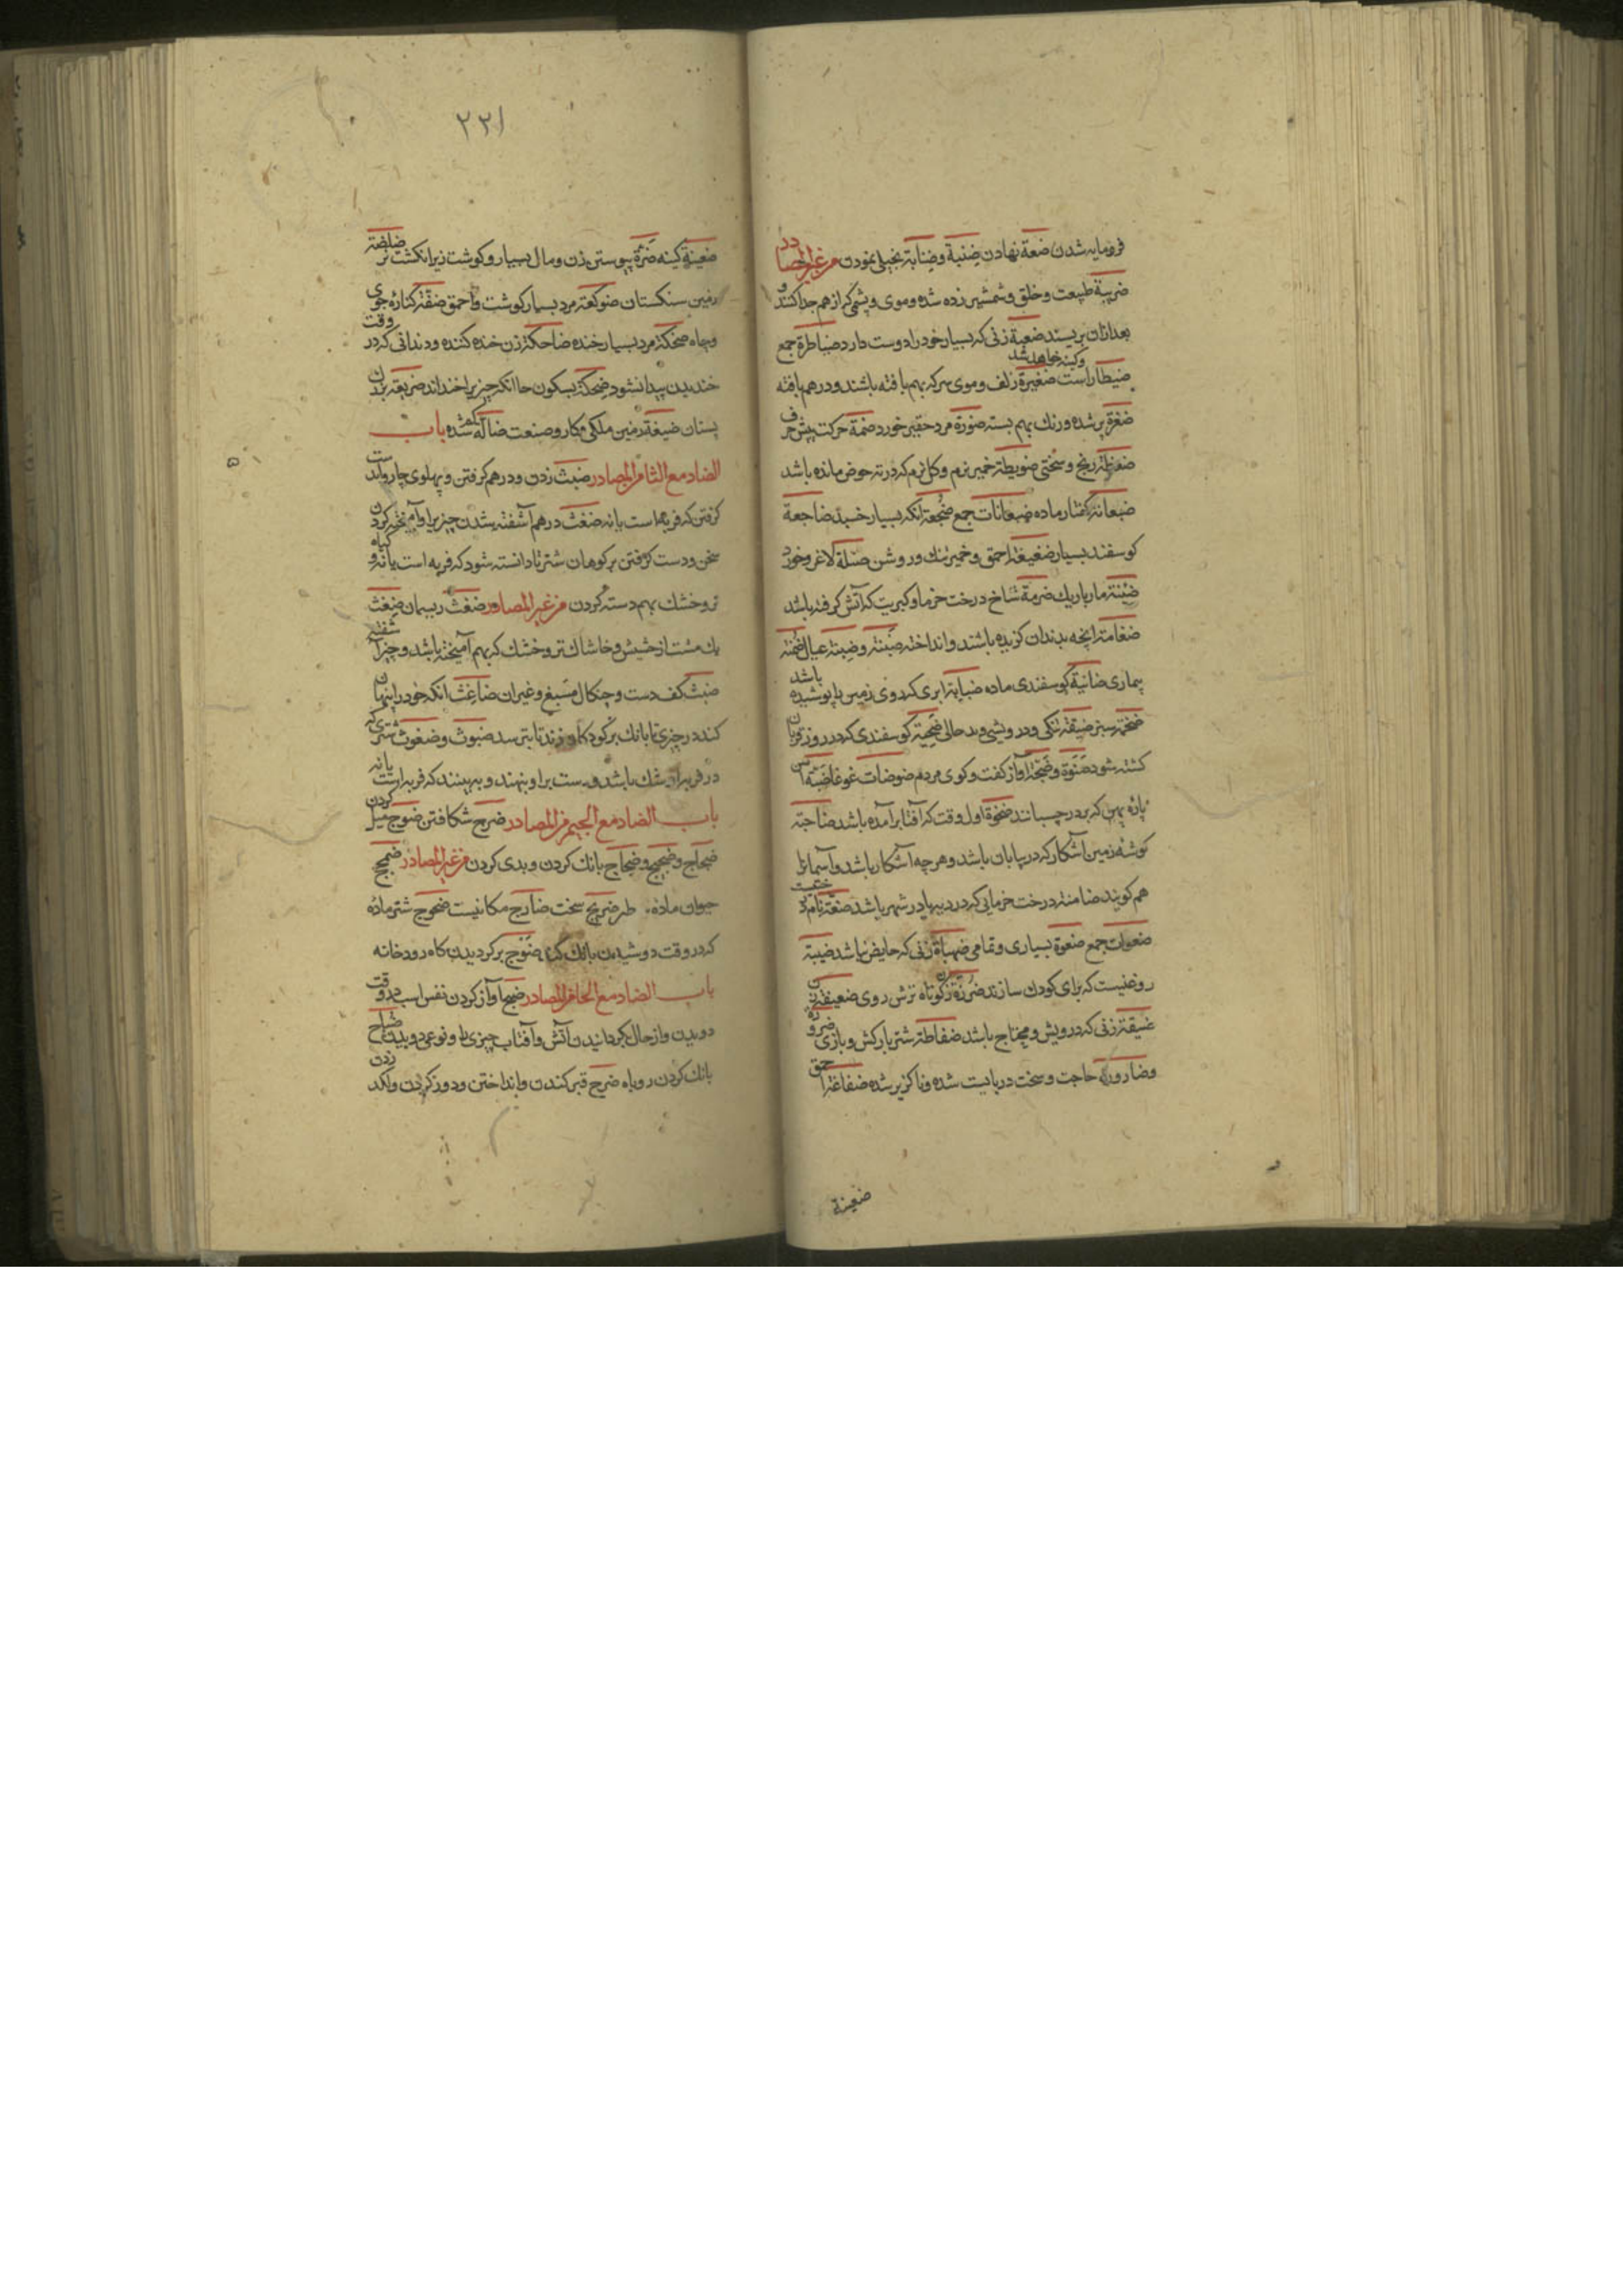 فرومایه شدن ضعة نهادن ضنبة وضنابة بخیلی نمودن من غیر المصادر
ضریبة طبیعت وخلق وشمشیر زده شده وموی وپشمی که از هم جدا کنند و
بعد ازان بریسند ضعبة زنی که بسیار خود را دوست دارد ضباطرة جمع
ضیطار است ضغیرة زلف وموی سر که بهم بافته باشند ودر هم بافته
وکینه خواهد شد
ضغرة پر شده ورنك بهم بسته ضورة مرد حقیر خورد ضمة حرکت پیش حرف
ضغطة رنج وسختی ضویطة خمیر نرم وکل نرم که در ته حوض مانده باشد
ضبعانة کفتار ماده ضبعانات جمع ضجعة انکه بسیار خسبد ضاجعة
کوسفند بسیار ضغیغة احمق وخمیر تنك وروشن ضئلة لاغر وخورد
ضئنة مار باریك ضرمة شاخ درخت خرما وکبریت که آتش کرفته باشد
ضغامة انچه بدندان کزیده باشند وانداخته ضبنة وضبنة عیال ضمنة
بیماری ضانیة کوسفندی ماده ضبابة ابری که روی زمین را پوشیده باشد
ضخمة سبز ضیقة تنکی ودرویشی وبد حالی ضحیة کوسفندی که در روز قربان
کشته شود ضنوة وضجة آواز کفت وکوی مردم ضوضات غوغا ضبة آهن
پاره پهن که بر در چسبانند ضحوة اول وقت که آفتاب برآمده باشد ضاحیة
کوشه زمین آشکار که در بیابان باشد وهرچه آشکار باشد وآسمانرا
هم کویند ضامنة درخت خرمایی که در دیهها در شهر باشد ضعة نام درختیست
ضعوات جمع ضعوة بسیاری وتمامی ضهیاة زنی که حایض نباشد ضیبة
روغنیست که برای کودك سازند ضرزة زن کوتاه ترش روی ضعیفة زن
ضیقة زنی که درویش ومحتاج باشد ضفاطة شتر بارکش وبازی ضرورة
وضارورة حاجت وسخت دربایست شده وناکزیر شده ضفاغة احمق
ضغینة
۲۲۱
ضغینة کینه ضرة پیوستن زن ومال بسیار وکوشت زیر انکشت نر ضلضة
زمین سنکستان ضوکعة مرد بسیار کوشت واحمق ضفة کناره جوی
وچاه ضحکة مرد بسیار خنده ضاحکة زن خنده کننده ودندانی که در وقت
خندیدن پیدا نشود ضحکة بسکون حا انکه چیزیرا خنداند ضریعة بزرك
پستان ضیعة زمین ملکی وکار وصنعت ضالة کم شده باب
الضاد مع الثا من المصادر ضبث زدن ودر هم کرفتن وپهلوی چاروا بدست
کرفتن که فربه است یا نه ضغث در هم آشفته شدن چیزیرا وآمیخته کردن
سخن ودست کرفتن بر کوهان شتر تا دانسته شود که فربه است یا نه وکیاه
تر وخشك بهم دسته کردن من غیر المصادر ضغث ریسمان ضغث
یك مشت از حشیش وخاشاك تر وخشك که بهم آمیخته باشد وچیز آشفته
ضبث کف دست وچنکال مسبع وغیر ان ضاغث انکه خود را پنهان
کند در چیزی تا بانك بر کودکان زند تا بترسد ضبوث وضغوث شتری که
در فربهی او شك باشد ودست بر او بنهند وبه بینند که فربه است یا نه
باب الضاد مع الجیم من المصادر ضرج شکافتن ضوج میل کردن
ضجاج وضجیج وضجاج بانك کردن وبدی کردن من غیر المصادر ضمج
حیوان ماده ضریج سخت ضارج مکانیست ضجوج شتر ماده
که در وقت دوشیدن بانك کند ضوج برکردیدن کاه رودخانه
باب الضاد مع الحا من المصادر ضبح آواز کردن نفس اسب در وقت
دویدن واز حال کردانیدن آتش وآفتاب چیزی را ونوعی دویدن ضباح
بانك کردن روباه ضرح قبر کندن وانداختن ودور کردن ولکد زدن